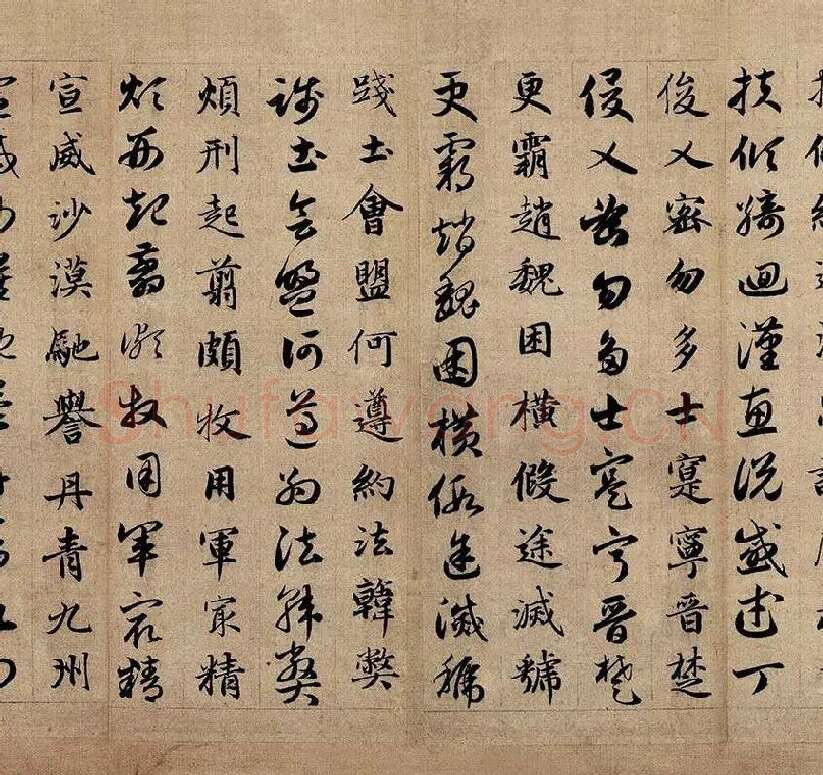 扶傾綺迴漢惠說感武丁
俊乂密勿多士寔寧晉楚
俊乂密勿多士寔寧晉楚
更霸趙魏困橫假途滅虢
更霸趙魏困橫假途滅虢
踐土會盟何遵約法韓弊
踐土會盟何遵約法韓弊
煩刑起翦頗牧用軍冣精
煩刑起翦頗牧用軍冣精
宣威沙漠馳譽丹青九州
Shufawang.CN